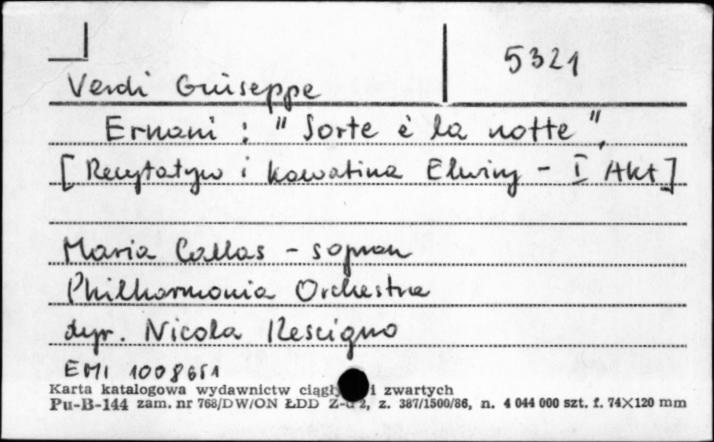 5321
Verdi Giuseppe
Ernani : "Sorte è la notte",
[Recytatyw i kawatina Elwiry - I Akt]
Maria Callas - sopran
Philharmonia Orchestra
dyr. Nicola Rescigno
EMI 1008651
Karta katalogowa wydawnictw i zwartych
Pu-B-144 zam. nr 768/DW/ON ŁDD z. 387/1500/86, n. 4 044 000 szt. f. 74×120 mm